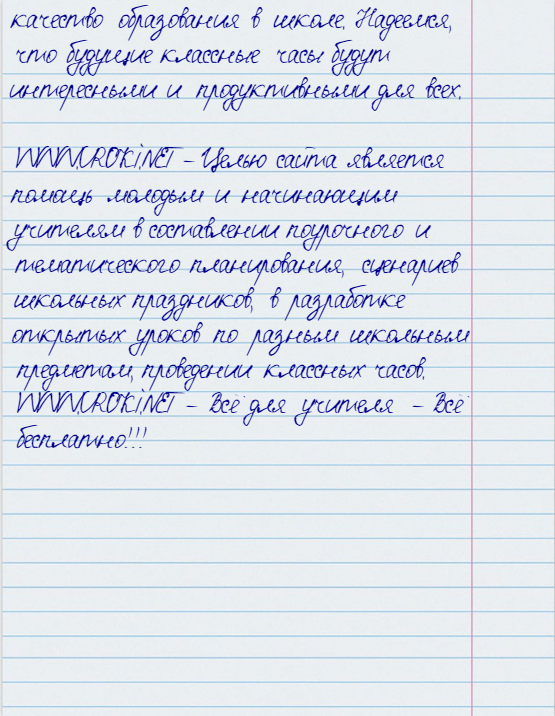 качество образования в школе. Надеемся,
что будущие классные часы будут
интересными и продуктивными для всех.
WWW.UROKI.NET – Целью сайта является
помощь молодым и начинающим
учителям в составлении поурочного и
тематического планирования, сценариев
школьных праздников, в разработке
открытых уроков по разным школьным
предметам, проведении классных часов.
WWW.UROKI.NET – Всё для учителя – Всё
бесплатно!!!